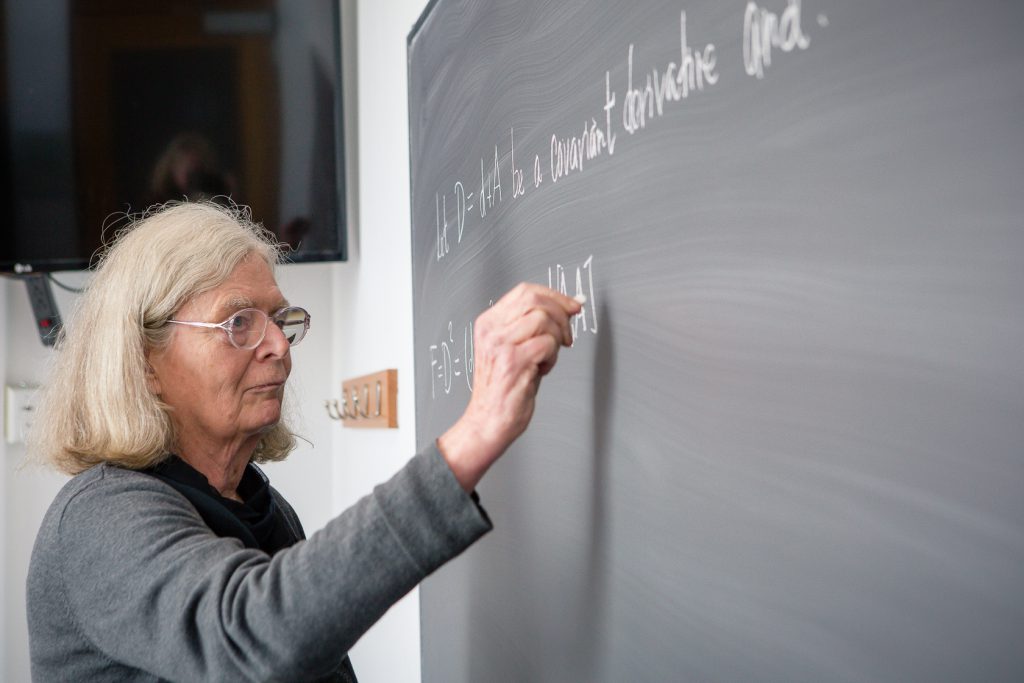 Let D = d+A be a covariant derivative and
F=D²= (d A]